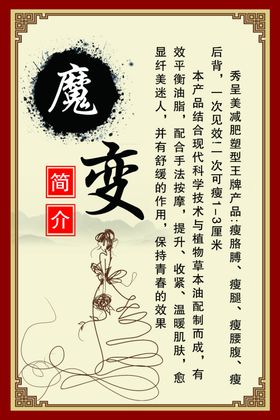 魔变
简介
秀呈美减肥塑型王牌产品:瘦胳膊、瘦腿、瘦腰腹、瘦
后背，一次见效:一次可瘦1-3厘米
本产品结合现代科学技术与植物草本油配制而成，有
效平衡油脂，配合手法按摩，提升、收紧、温暖肌肤，愈
显纤美迷人，并有舒缓的作用，保持青春的效果